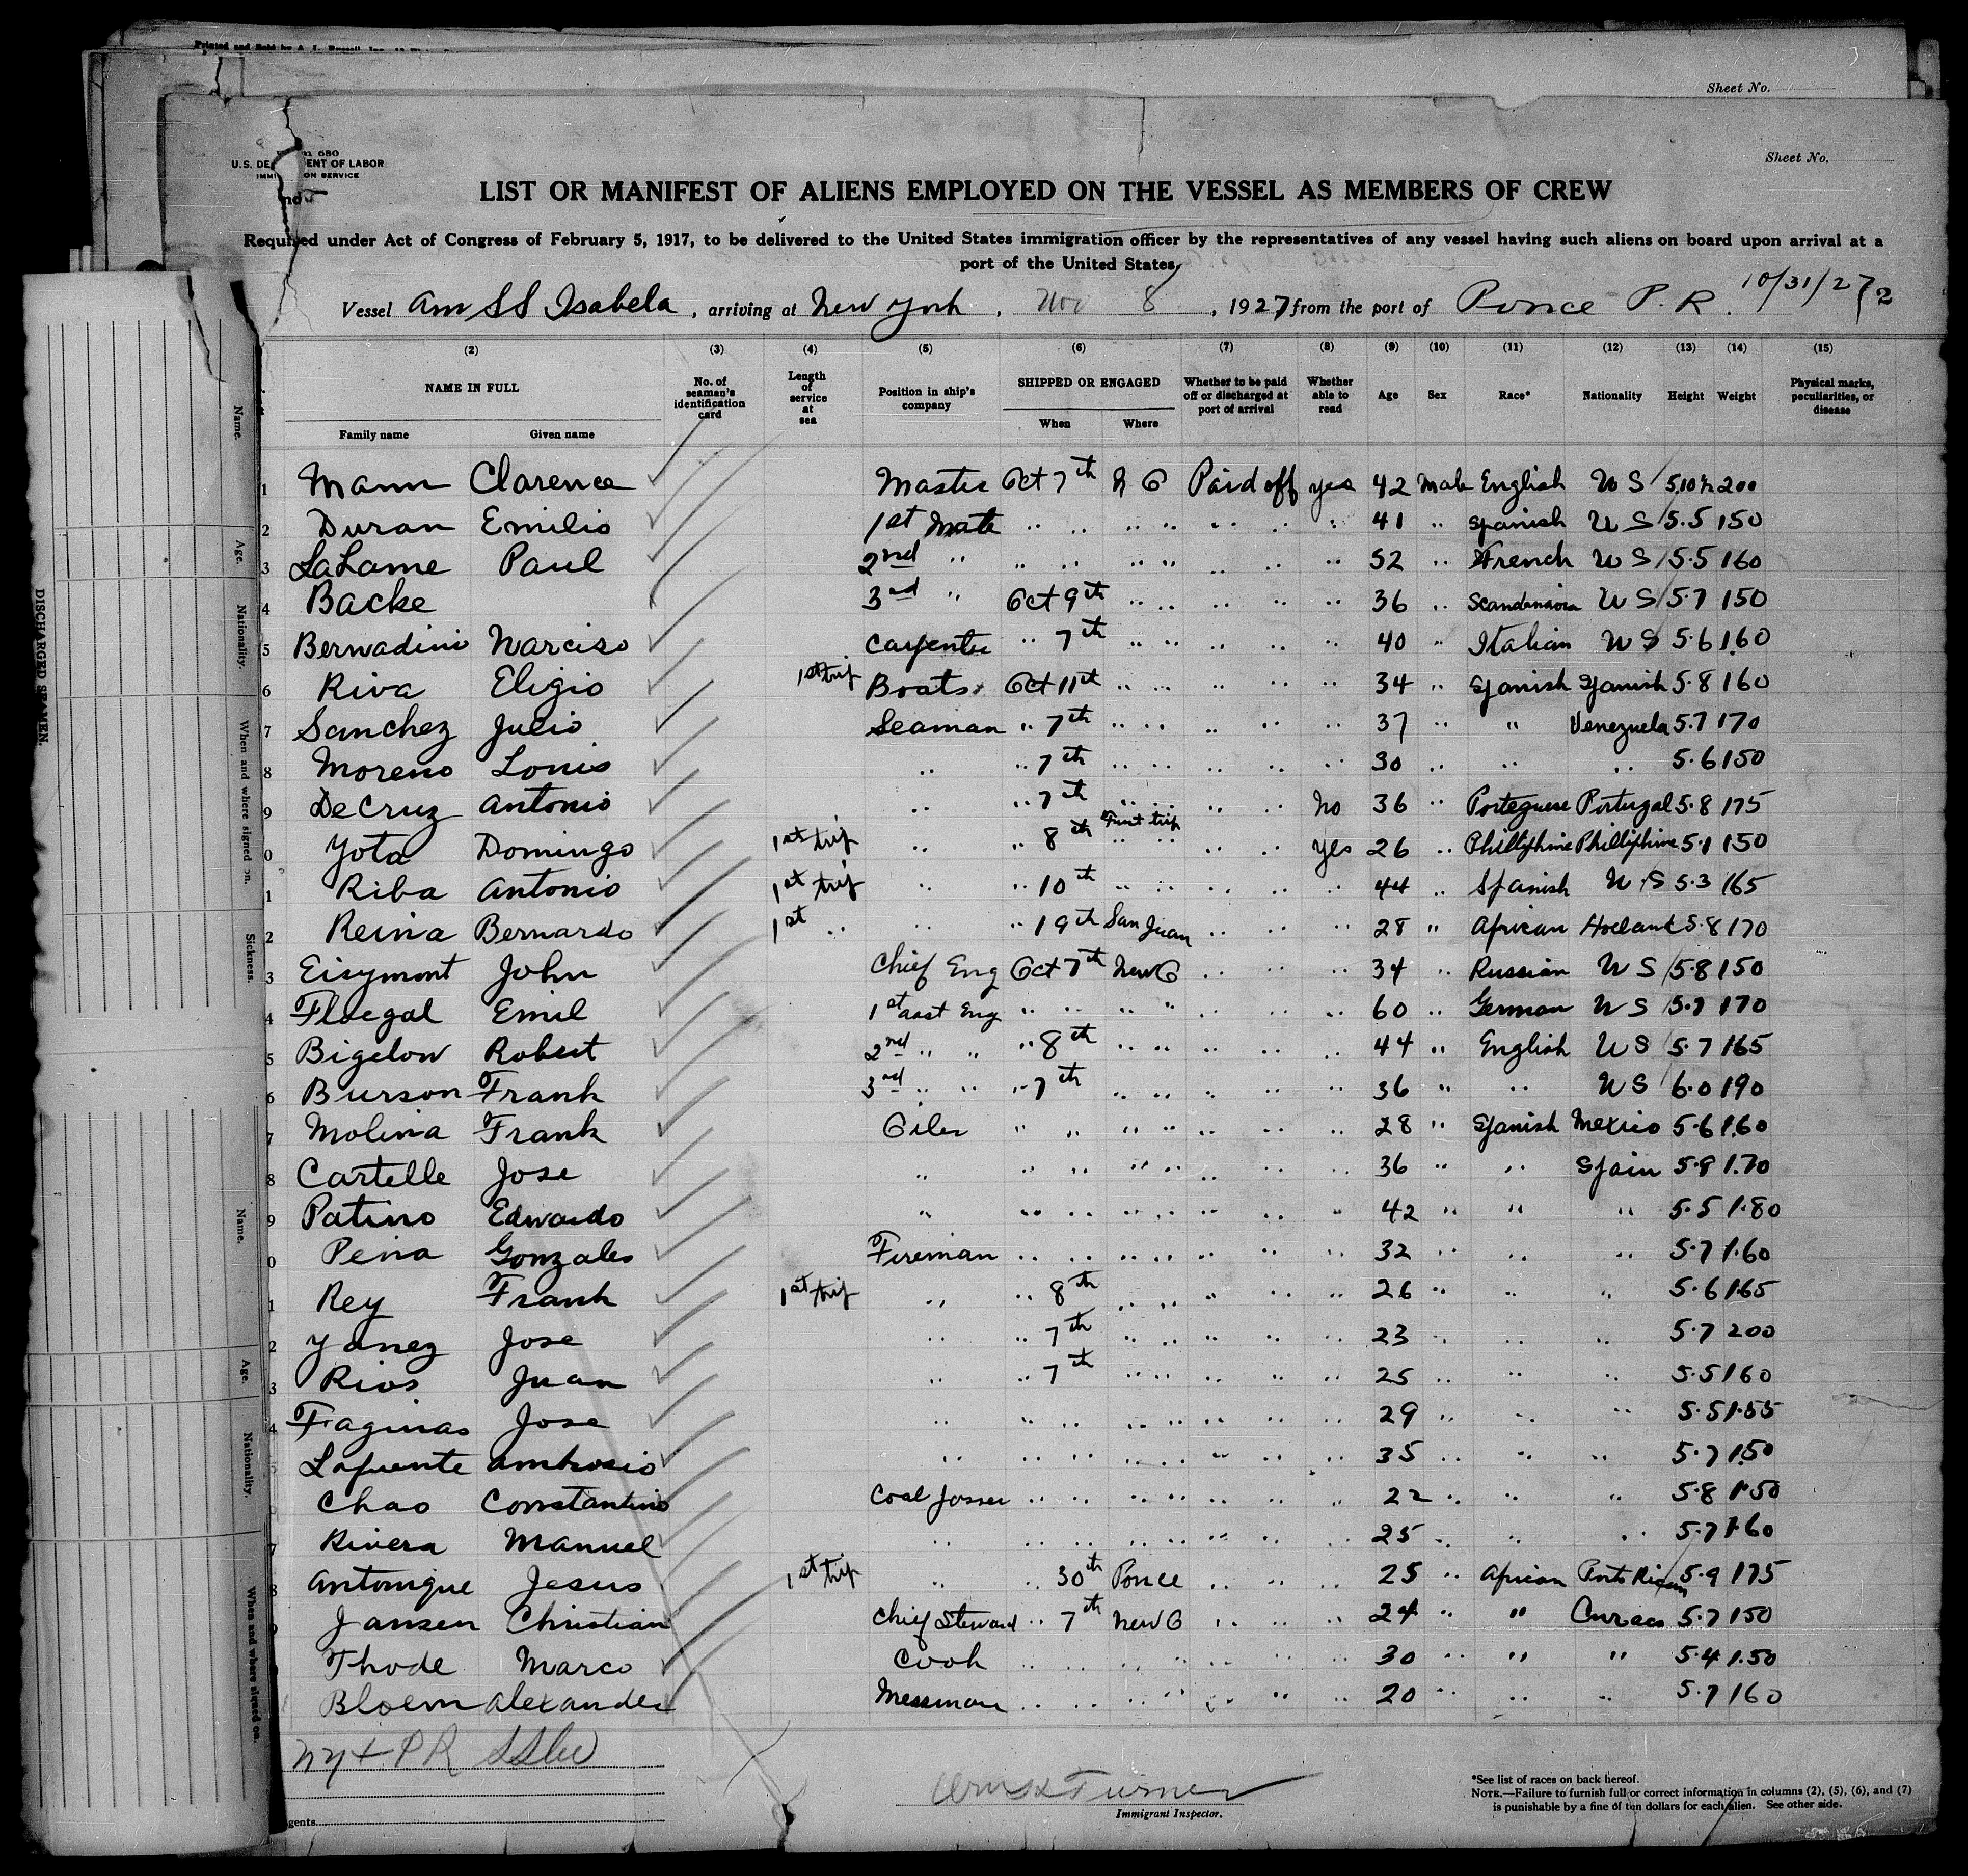 Printed and Sold by A. L. Russell, Inc.
Sheet No.
Sheet No.
680
U.S. DE ENT OF LABOR
IMMI ON SERVICE
LIST OR MANIFEST OF ALIENS EMPLOYED ON THE VESSEL AS MEMBERS OF CREW
Required under Act of Congress of February 5, 1917, to be delivered to the United States immigration officer by the representatives of any vessel having such aliens on board upon arrival at a
port of the United States
Vessel Am SS Isabela, arriving at New York, Nov 8, 1927 from the port of Ponce P.R. 10/31/27 2
(2) (3) (4) (5) (6) (7) (8) (9) (10) (11) (12) (13) (14) (15)
NAME IN FULL No. of seaman's identification card Length of service at sea Position in ship's company SHIPPED OR ENGAGED Whether to be paid off or discharged at port of arrival Whether able to read Age Sex Race* Nationality Height Weight Physical marks, peculiarities, or disease
Family name Given name When Where
1 Mann Clarence Master Oct 7th N O Paid off yes 42 Male English U S 5.10½ 200
2 Duran Emilio 1st Mate .. .. .. .. .. .. .. 41 .. Spanish U S 5.5 150
3 LaLame Paul 2nd " .. .. .. .. .. .. .. 52 .. French U S 5.5 160
4 Backe 3rd " Oct 9th .. .. .. .. .. 36 .. Scandanavia U S 5.7 150
5 Bernadini Narciso Carpenter " 7th .. .. .. .. .. 40 " Italian U S 5.6 160
6 Riva Eligio 1st trip Boats. Oct 11th .. .. .. .. .. 34 .. Spanish Spanish 5.8 160
7 Sanchez Julio Seaman " 7th .. .. .. .. .. 37 .. " Venezuela 5.7 170
8 Moreno Louis .. " 7th .. .. .. .. .. 30 .. .. .. 5.6 150
9 DeCruz Antonio .. " 7th .. .. .. .. No 36 .. Porteguese Portugal 5.8 175
0 Yota Domingo 1st trip .. " 8th First trip .. .. .. .. Yes 26 .. Philliphine Philliphine 5.1 150
1 Riba Antonio 1st trip .. " 10th .. .. .. .. .. 44 .. Spanish U.S 5.3 165
2 Reina Bernardo 1st .. .. " 19th San Juan .. .. .. 28 " African Holland 5.8 170
3 Eisymont John Chief Eng Oct 7th New O .. .. .. 34 .. Russian U S 5.8 150
4 Fluegal Emil 1st asst Eng .. .. .. " .. .. .. 60 .. German U S 5.7 170
5 Bigelow Robert 2nd " " " 8th .. .. .. .. .. 44 " English U S 5.7 165
6 Burson Frank 3rd " " " 7th .. .. .. .. .. 36 " .. U S 6.0 190
7 Molina Frank Oiler " " " " .. .. .. 28 " Spanish Mexico 5.6 160
8 Cartelle Jose " " " " " .. .. .. 36 " " Spain 5.8 1.70
9 Patino Edwardo " " " " " .. .. .. 42 " " " 5.5 1.80
0 Pena Gonzales Fireman .. .. .. .. .. .. .. 32 .. .. .. 5.7 1.60
1 Rey Frank 1st trip " " 8th .. .. .. .. .. 26 " .. .. 5.6 165
2 Yanez Jose .. " 7th .. .. .. .. .. 23 .. .. .. 5.7 200
3 Rios Juan .. " 7th .. .. .. .. .. 25 .. .. .. 5.5 160
4 Faginas Jose .. .. .. .. .. .. .. .. 29 .. .. .. 5.5 1.55
Lafuente Ambrosio .. .. .. .. .. .. .. .. 35 .. .. .. 5.7 150
Chao Constantino Coal Passer .. .. .. .. .. .. .. 22 .. .. .. 5.8 1.50
7 Rivera Manuel .. .. .. .. .. .. .. .. 25 .. .. .. 5.7 1.60
8 Antonique Jesus 1st trip " .. 30th Ponce .. .. .. 25 " African Porto Rican 5.9 175
Jansen Christian Chief Steward .. 7th New O .. .. .. 24 " " Curacao 5.7 150
Thode Marco Cook .. .. .. " .. .. .. 30 " " " 5.4 1.50
Bloem Alexander Messman .. .. .. " .. .. .. 20 .. .. .. 5.7 160
NY & PR SS Co
Immigrant Inspector.
gents
*See list of races on back hereof.
NOTE.—Failure to furnish full or correct information in columns (2), (5), (6), and (7)
is punishable by a fine of ten dollars for each alien. See other side.
DISCHARGED SEAMEN.
Name.
Age.
Nationality.
When and where signed on.
Sickness.
Name.
Age.
Nationality.
When and where signed on.